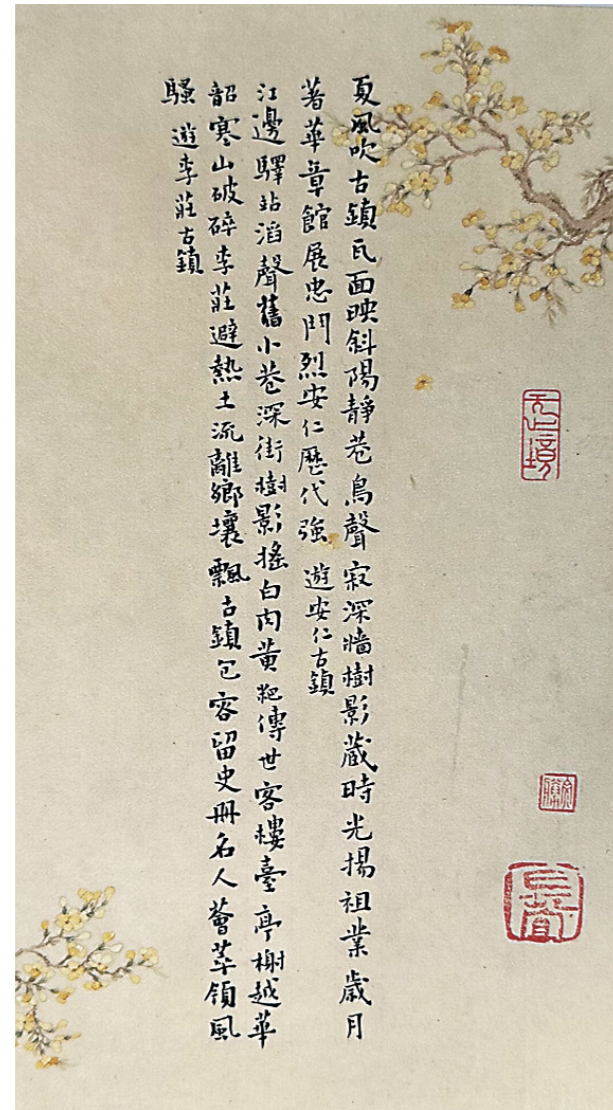 夏風吹古鎮瓦面映斜陽靜巷鳥聲寂深牆樹影藏時光揚祖業歲月
著華章館展忠門烈安仁歷代強 遊安仁古鎮
江邊驛站滔聲舊小巷深街樹影搖白肉黃粑傳世客樓臺亭榭越華
韶寒山破碎李莊避熱土流離鄉壤飄古鎮包容留史冊名人薈萃領風
騷 遊李莊古鎮